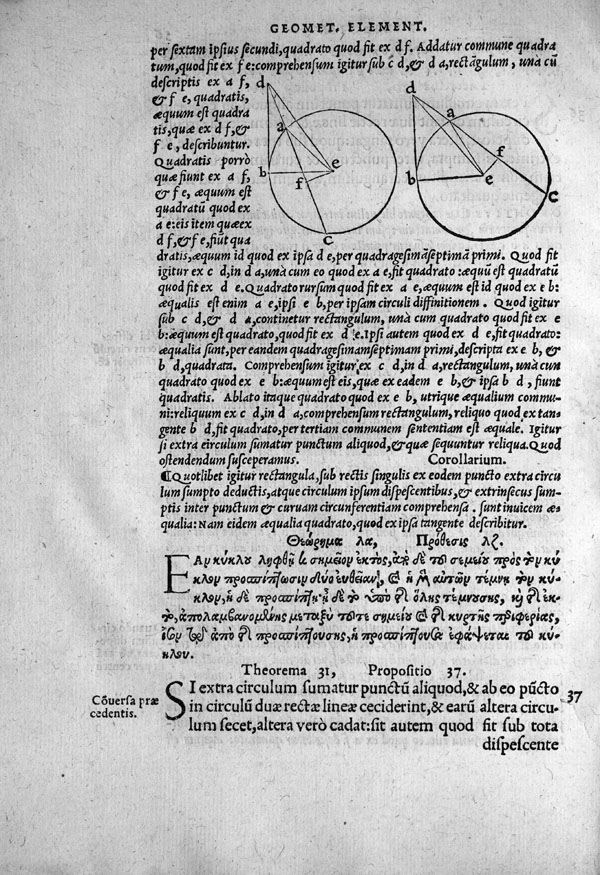 GEOMET. ELEMENT.
per sextam ipsius secundi, quadrato quod fit ex d f. Addatur commune quadra
tum, quod fit ex f e: comprehensum igitur sub c d, & d a, rectāgulum, una cū
descriptis ex a f,
& f e, quadratis,
æquum est quadra
tis, quæ ex d f, &
f e, describuntur.
Quadratis porrò
quæ fiunt ex a f,
& f e, æquum est
quadratū quod ex
a e: eis item quæ ex
d f, & f e, fiūt qua
d
a
b
e
f
c
d
a
f
b
e
c
dratis, æquum id quod ex ipsa d e, per quadragesimāseptimā primi. Quod fit
igitur ex c d, in d a, unà cum eo quod ex a e, fit quadrato: æquū est quadratū
quod fit ex d e. Quadrato rursum quod fit ex a e, æquum est id quod ex e b:
æqualis est enim a e, ipsi e b, per ipsam circuli diffinitionem. Quod igitur
sub c d, & d a, continetur rectangulum, unà cum quadrato quod fit ex e
b: æquum est quadrato, quod fit ex d e. Ipsi autem quod ex d e, fit quadrato:
æqualia sunt, per eandem quadragesimamseptimam primi, descripta ex e b, &
b d, quadrata. Comprehensum igitur ex c d, in d a, rectangulum, unà cun
quadrato quod ex e b: æquum est eis, quæ ex eadem e b, & ipsa b d, fiunt
quadratis. Ablato itaque quadrato quod ex e b, utrique æqualium commu-
ni: reliquum ex c d, in d a, comprehensum rectangulum, reliquo quod ex tan-
gente b d, fit quadrato, per tertiam communem sententiam est æquale. Igitur
si extra circulum sumatur punctum aliquod, & quæ sequuntur reliqua. Quod
ostendendum susceperamus. Corollarium.
¶Quotlibet igitur rectangula, sub rectis singulis ex eodem puncto extra circu
lum sumpto deductis, atque circulum ipsum dispescentibus, & extrinsecus sum-
ptis inter punctum & curuam circunferentiam comprehensa. sunt inuicem æ-
qualia: Nam eidem æqualia quadrato, quod ex ipsa tangente describitur.
Θεώρημα λα, Πρόθεσις λζ.
ΕΑν κύκλου ληφθῇ σημεῖον ἐκτὸς, ἀπὸ δὲ τοῦ σημείου πρὸς τὸν κύ
κλον προσπίπτωσιν δύο εὐθεῖαι, καὶ ἡ μὲν αὐτῶν τέμνῃ τὸν κύ-
κλον, ἡ δὲ προσπίπτῃ, ᾖ δὲ τὸ ὑπὸ τῆς ὅλης τεμνούσης, καὶ τῆς ἐκτ-
ὸς, ἀπολαμβανομένης μεταξὺ τοῦτε σημείου καὶ τῆς κυρτῆς περιφερίας,
ἴσον τῷ ἀπὸ τῆς προσπιπτούσης, ἡ προσπίπτουσα ἐφάψεται τοῦ κύ-
κλου.
Theorema 31, Propositio 37.
Cōuersa præ
cedentis.
SI extra circulum sumatur punctū aliquod, & ab eo pūcto
in circulū duæ rectæ lineæ ceciderint, & earū altera circu-
lum secet, altera verò cadat: sit autem quod fit sub tota
37
dispescente